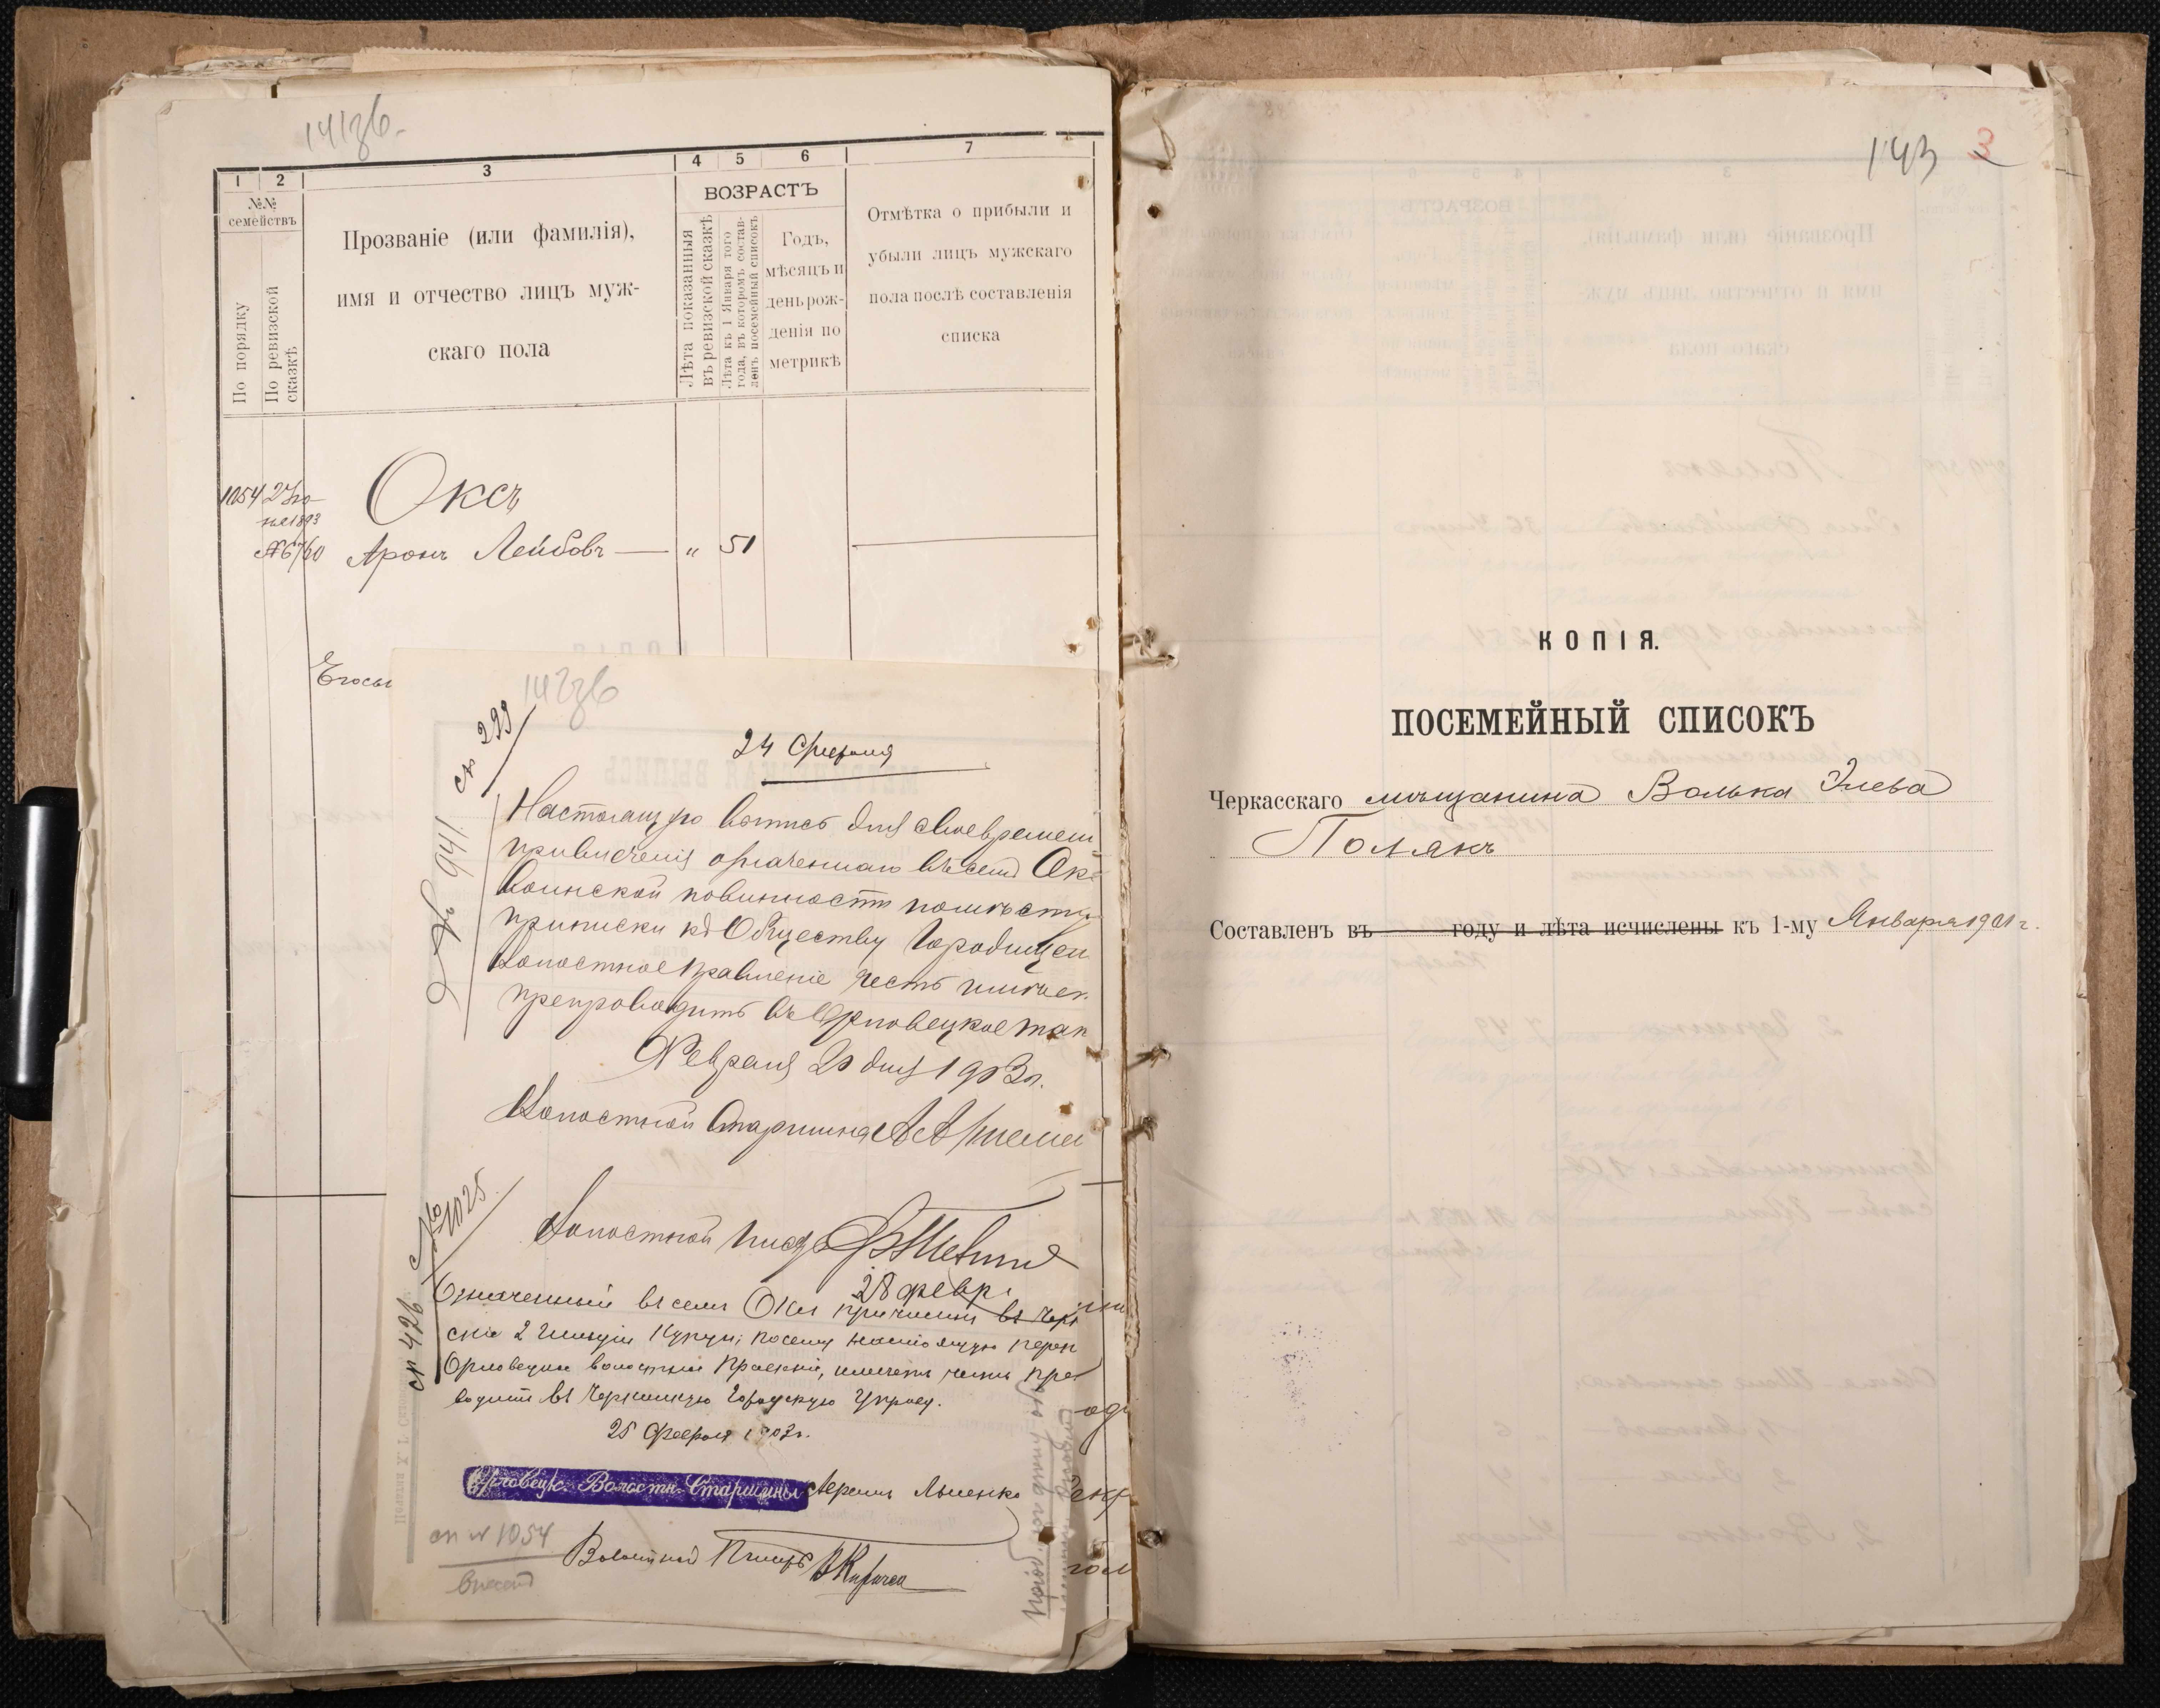 141зв.
1 2 3 4 5 6 7
№№ семействъ
По порядку
По ревизской сказкѣ
Прозваніе (или фамилія),
имя и отчество лицъ муж-
скаго пола
ВОЗРАСТЪ
Лѣта показанныя
въ ревизской сказкѣ
Лѣта къ 1 Января того
года, въ которомъ состав-
ленъ посемейный списокъ
Годъ,
мѣсяцъ и
день рож-
денія по
метрикѣ
Отмѣтка о прибыли и
убыли лицъ мужскаго
пола послѣ составленія
списка
1054 2 Iю-
ня 1893
№6760
Оксъ
Аронъ Лейбовъ — " 51
142зв
24 Февраля
№ 941.
ст 299
Настоящую выпись для своевремен-
привлеченія означеннаго въ сей Окс
воинской повинности по мѣсту
приписки къ Обществу Городищен
Волостное Правленіе честь имѣет
препроводить въ Орловецкое так
Февраля 20 дня 1903 г.
Волостной Старшина
Волостной Писарь
№ 1025.
ст 426
28 февр.
Означенный въ семъ Оксъ причисленъ въ Черк
посему настоящую переп
Орловецкое волостное Правленіе, имѣетъ честь пре
водить въ Черкасскую Городскую Управу.
25 Февраля 1903 г.
Орловецк. Волостн. Старшины
Волостной Писарь
сп № 1054
143 3
КОПІЯ.
ПОСЕМЕЙНЫЙ СПИСОКЪ
Черкасскаго мѣщанина Волька Элева
Полякъ
Составленъ въ году и лѣта исчислены къ 1-му Января 1901 г.